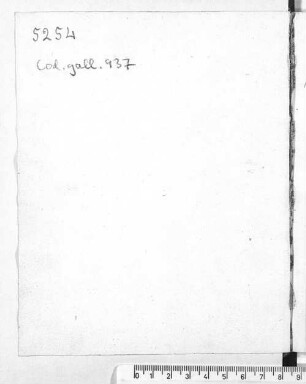 5254
Cod. gall. 937
0 1 2 3 4 5 6 7 8 9